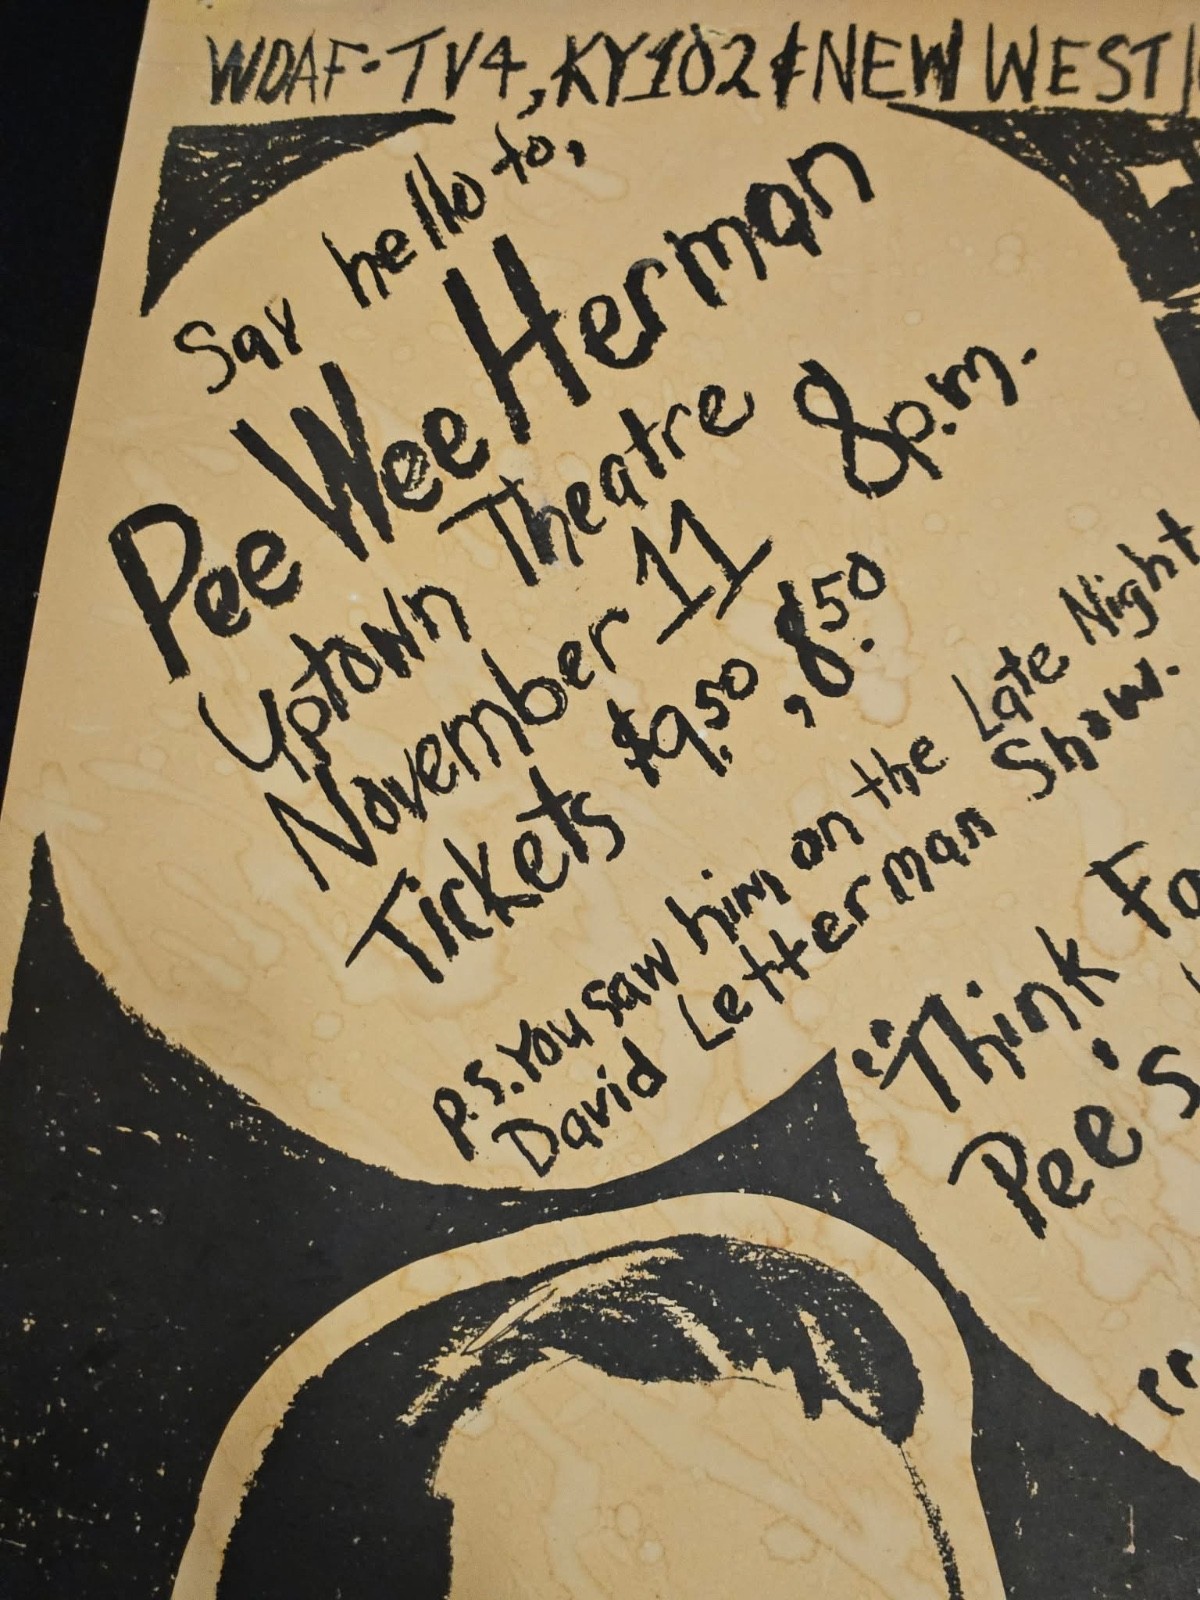 WDAF-TV4, KY102 & NEW WEST
Say hello to,
Pee Wee Herman
Uptown Theatre 8p.m.
November 11
Tickets $9.50, 8.50
P.S. You saw him on the Late Night
David Letterman Show.
"Think
Pee's